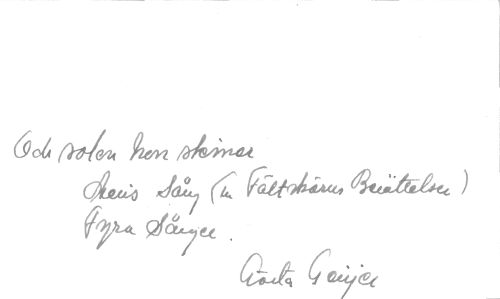 Och solen hon skiner
Sång (ur Fältskärns Berättelser)
Fyra Sånger.
Gösta Geijer